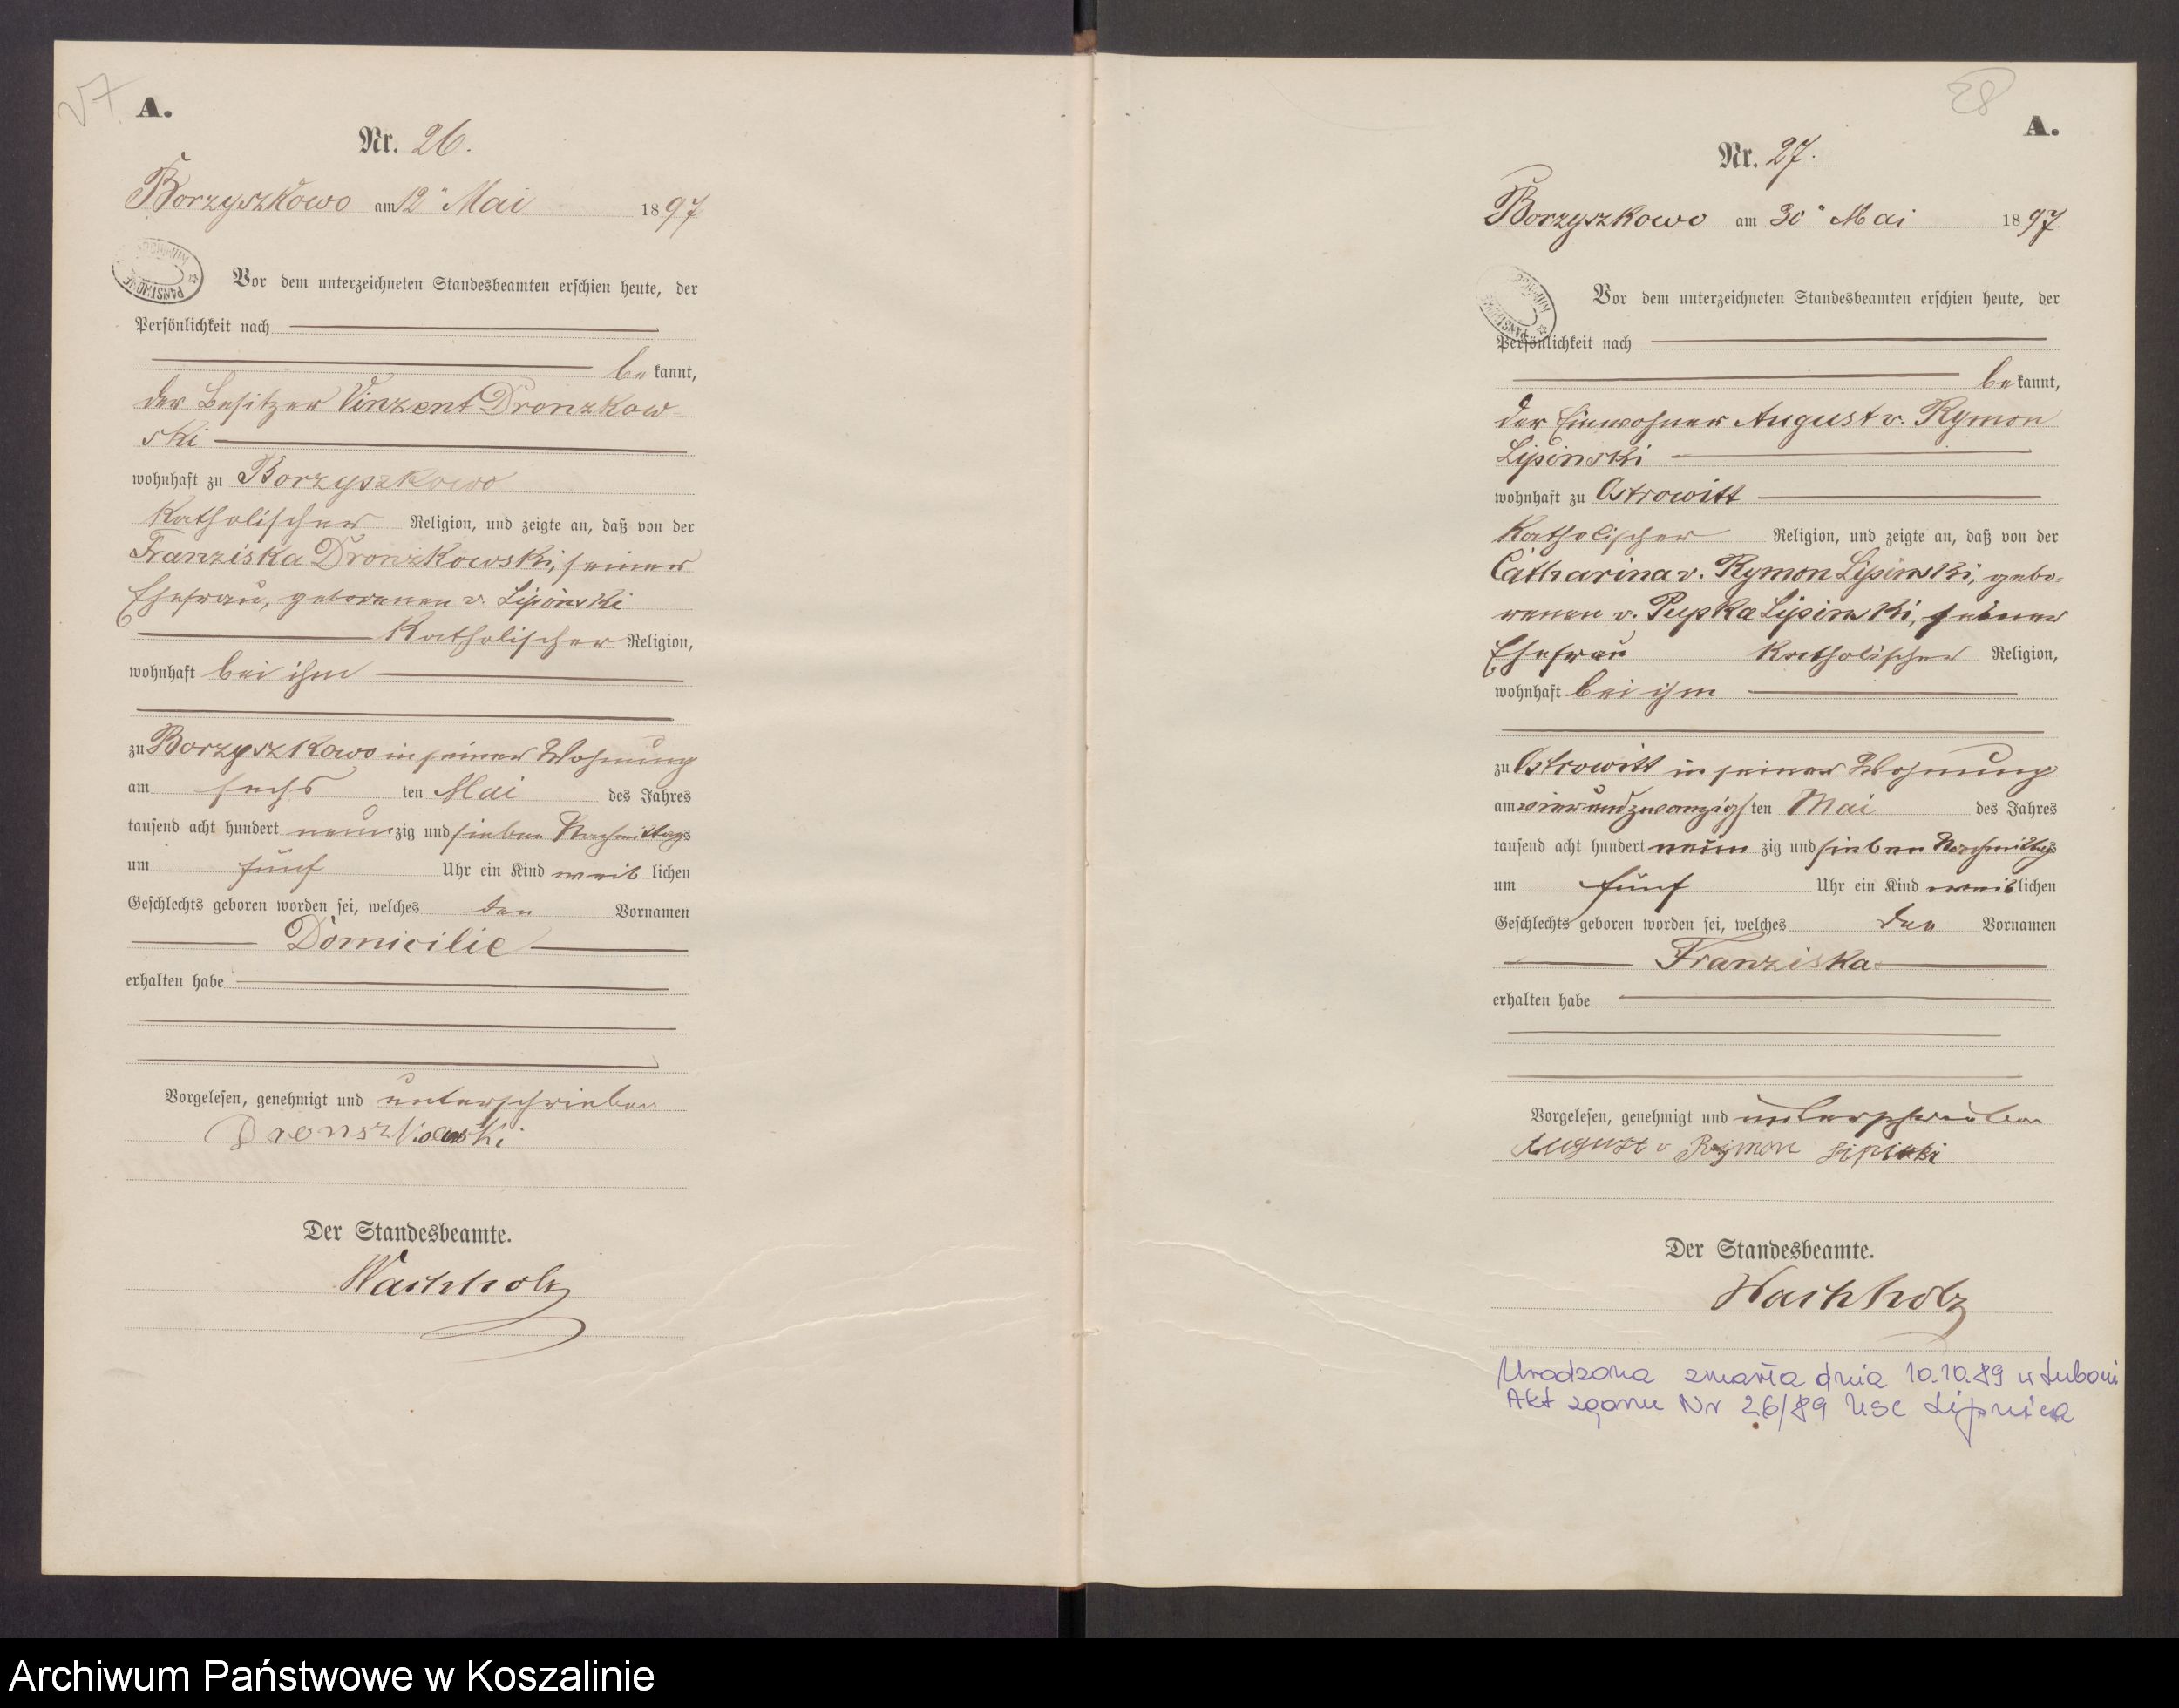 A.
Nr. 26.
Borzyszkowo am 12ᵗ Mai 1897
Vor dem unterzeichneten Standesbeamten erschien heute, der
Persönlichkeit nach
bekannt,
der Besitzer Vinzent Dronzkow-
ski
wohnhaft zu Borzyszkowo
Katholischer Religion, und zeigte an, daß von der
Franziska Dronzkowski, seiner
Ehefrau, geborenen v. Lipinski
Katholischer Religion,
wohnhaft bei ihm
zu Borzyszkowo in seiner Wohnung
am sechsten Mai des Jahres
tausend acht hundert neunzig und sieben Nachmittags
um fünf Uhr ein Kind weiblichen
Geschlechts geboren worden sei, welches den Vornamen
Domicilie
erhalten habe
Vorgelesen, genehmigt und unterschrieben
Dronszkowski
Der Standesbeamte.
Wachholz
28
A.
Nr. 27.
Borzyszkowo am 30ᵗ Mai 1897
PAŃSTWOWE
Vor dem unterzeichneten Standesbeamten erschien heute, der
Persönlichkeit nach
bekannt,
der Einwohner August v. Rymon
Lipinski
wohnhaft zu Ostrowitt
Katholischer Religion, und zeigte an, daß von der
Catharina v. Rymon Lipinski, gebo-
renen v. Pupka Lipinski, seiner
Ehefrau Katholischer Religion,
wohnhaft bei ihm
zu Ostrowitt in seiner Wohnung
am vierundzwanzigsten Mai des Jahres
tausend acht hundert neunzig und sieben Nachmittags
um fünf Uhr ein Kind weiblichen
Geschlechts geboren worden sei, welches den Vornamen
Franziska
erhalten habe
Vorgelesen, genehmigt und unterschrieben
August v Rymon Lipinki
Der Standesbeamte.
Wachholz
Urodzona zmarła dnia 10.10.89 w Luboni
Akt zgonu Nr 26/89 USC Lipnica
Archiwum Państwowe w Koszalinie